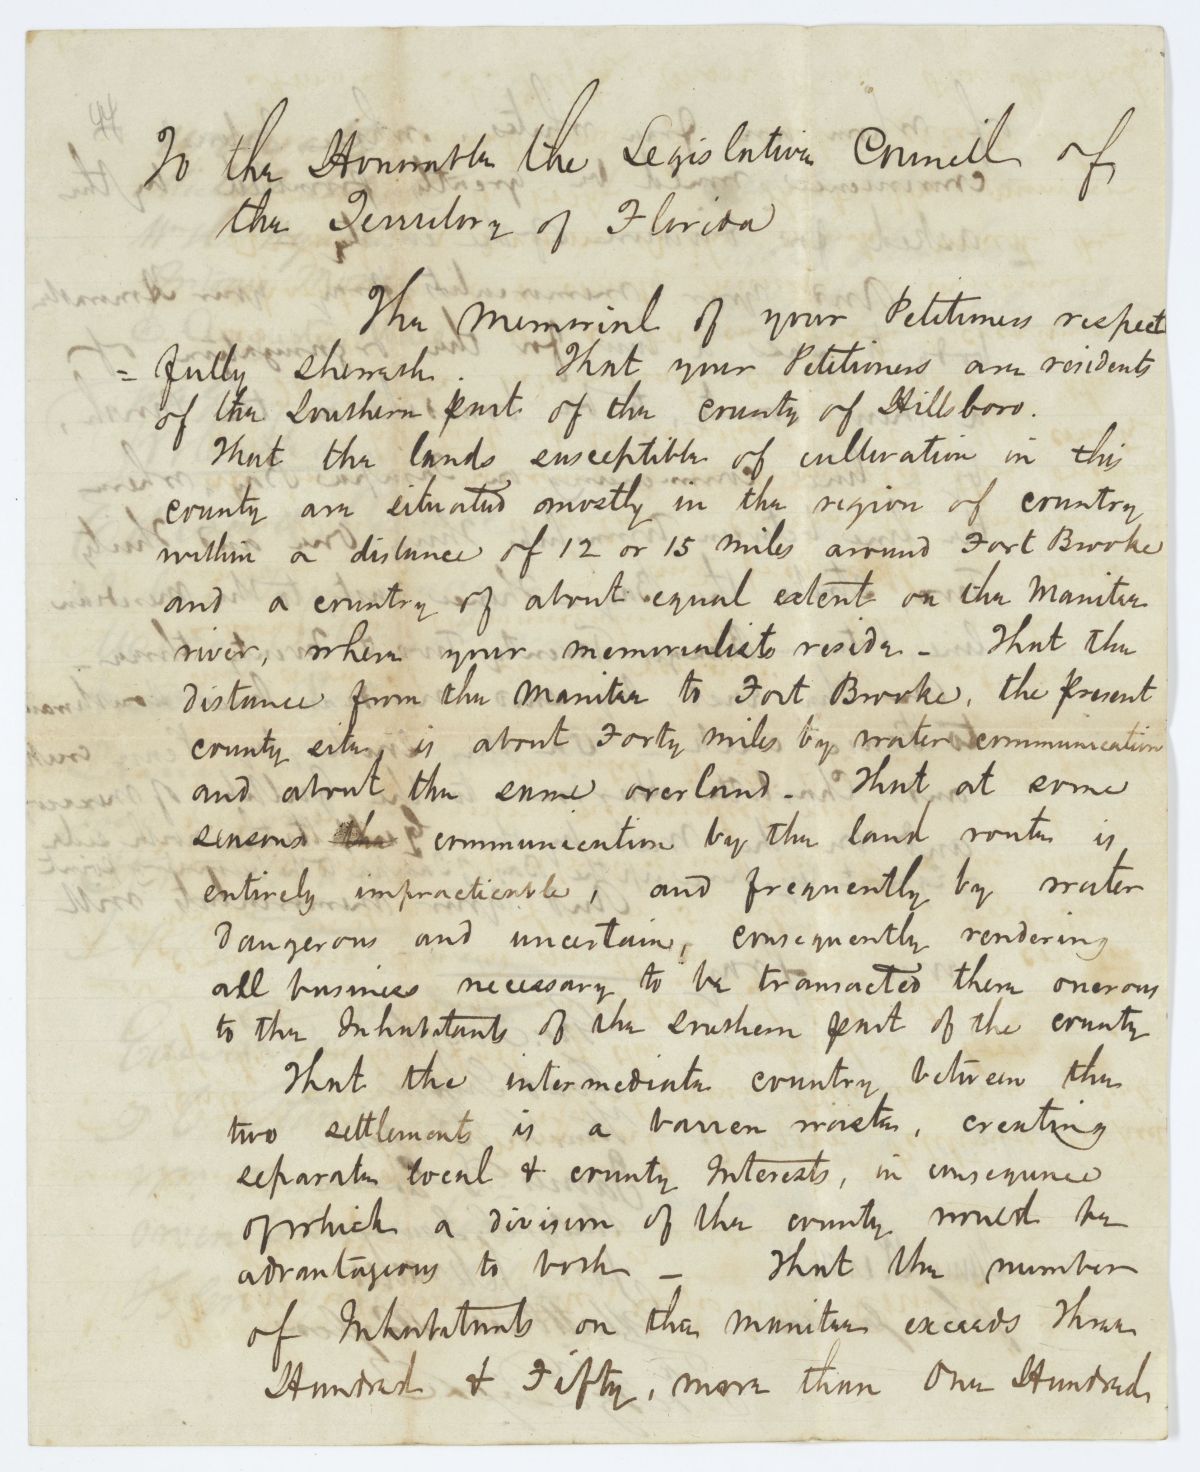 To the Honorable the Legislative Council of
the Territory of Florida
The Memorial of your Petitioners respect
= fully sheweth. That your Petitioners are residents
of the Southern part of the county of Hillsboro.
That the lands susceptible of cultivation in this
county are situated mostly in the region of country
within a distance of 12 or 15 miles around Fort Brooke
and a country of about equal extent on the Manitee
river, where your memorialists reside - That the
distance from the Manitee to Fort Brooke, the present
county site, is about Forty miles by water communication
and about the same overland - That at some
seasons the communication by the land route is
entirely impracticable, and frequently by water
dangerous and uncertain, consequently rendering
all business necessary to be transacted there onerous
to the Inhabitants of the southern part of the county
That the intermediate country between the
two settlements is a barren waste, creating
separate local & county Interests, in consequence
of which a division of the county would be
advantageous to both - That the number
of Inhabitants on the Manitee exceeds Three
Hundred & Fifty, more than One Hundred